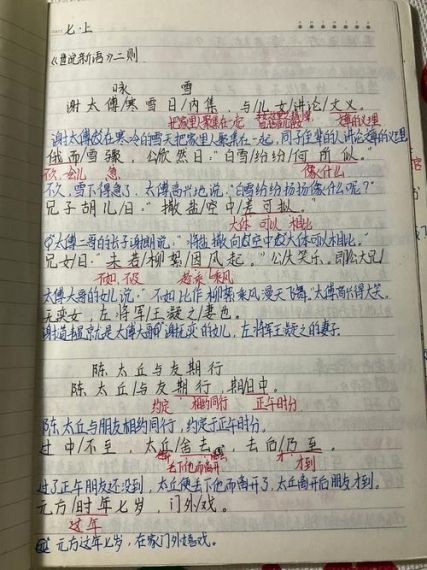 七·上
《世说新语》二则
咏 雪
谢太傅寒雪日/内集，与/儿女/讲论/文义。
把家里人聚集在一起 文章的义理
谢太傅在寒冷的雪天把家里人聚集在一起，同子侄辈的人讲论文章的义理
俄而/雪骤，公/欣然曰："白雪/纷纷/何所似。"
不久 急 像什么
不久，雪下得急了，太傅高兴地说："白雪纷纷扬扬像什么呢？"
兄子胡儿/曰："撒盐/空中/差可拟。"
大体 可以 相比
太傅二哥的长子谢朗说，"将盐撒向空中大体可以相比。"
兄女曰："未若/柳絮/因风起。"公/大笑乐。即公大兄/
不如 不及 趁乘 乘风
太傅大哥的女儿说，"不如比作柳絮乘风漫天飞舞。"太傅高兴得大笑。
无奕女，左将军/王凝之/妻也。
谢道韫就是太傅大哥谢无奕的女儿，左将军王凝之的妻子
陈太丘与友期行
陈太丘/与友期行，期/日中。
约定 相约同行 正午时分
陈太丘与朋友相约同行，约定于正午时分。
过中/不至，太丘/舍去，去后/乃至。
丢下他而离开 才 才到
过了正午朋友还没到，太丘便丢下他而离开了，太丘离开后朋友才到。
元方/时年七岁，门外/戏。
这年
元方这年七岁，在家门外嬉戏。